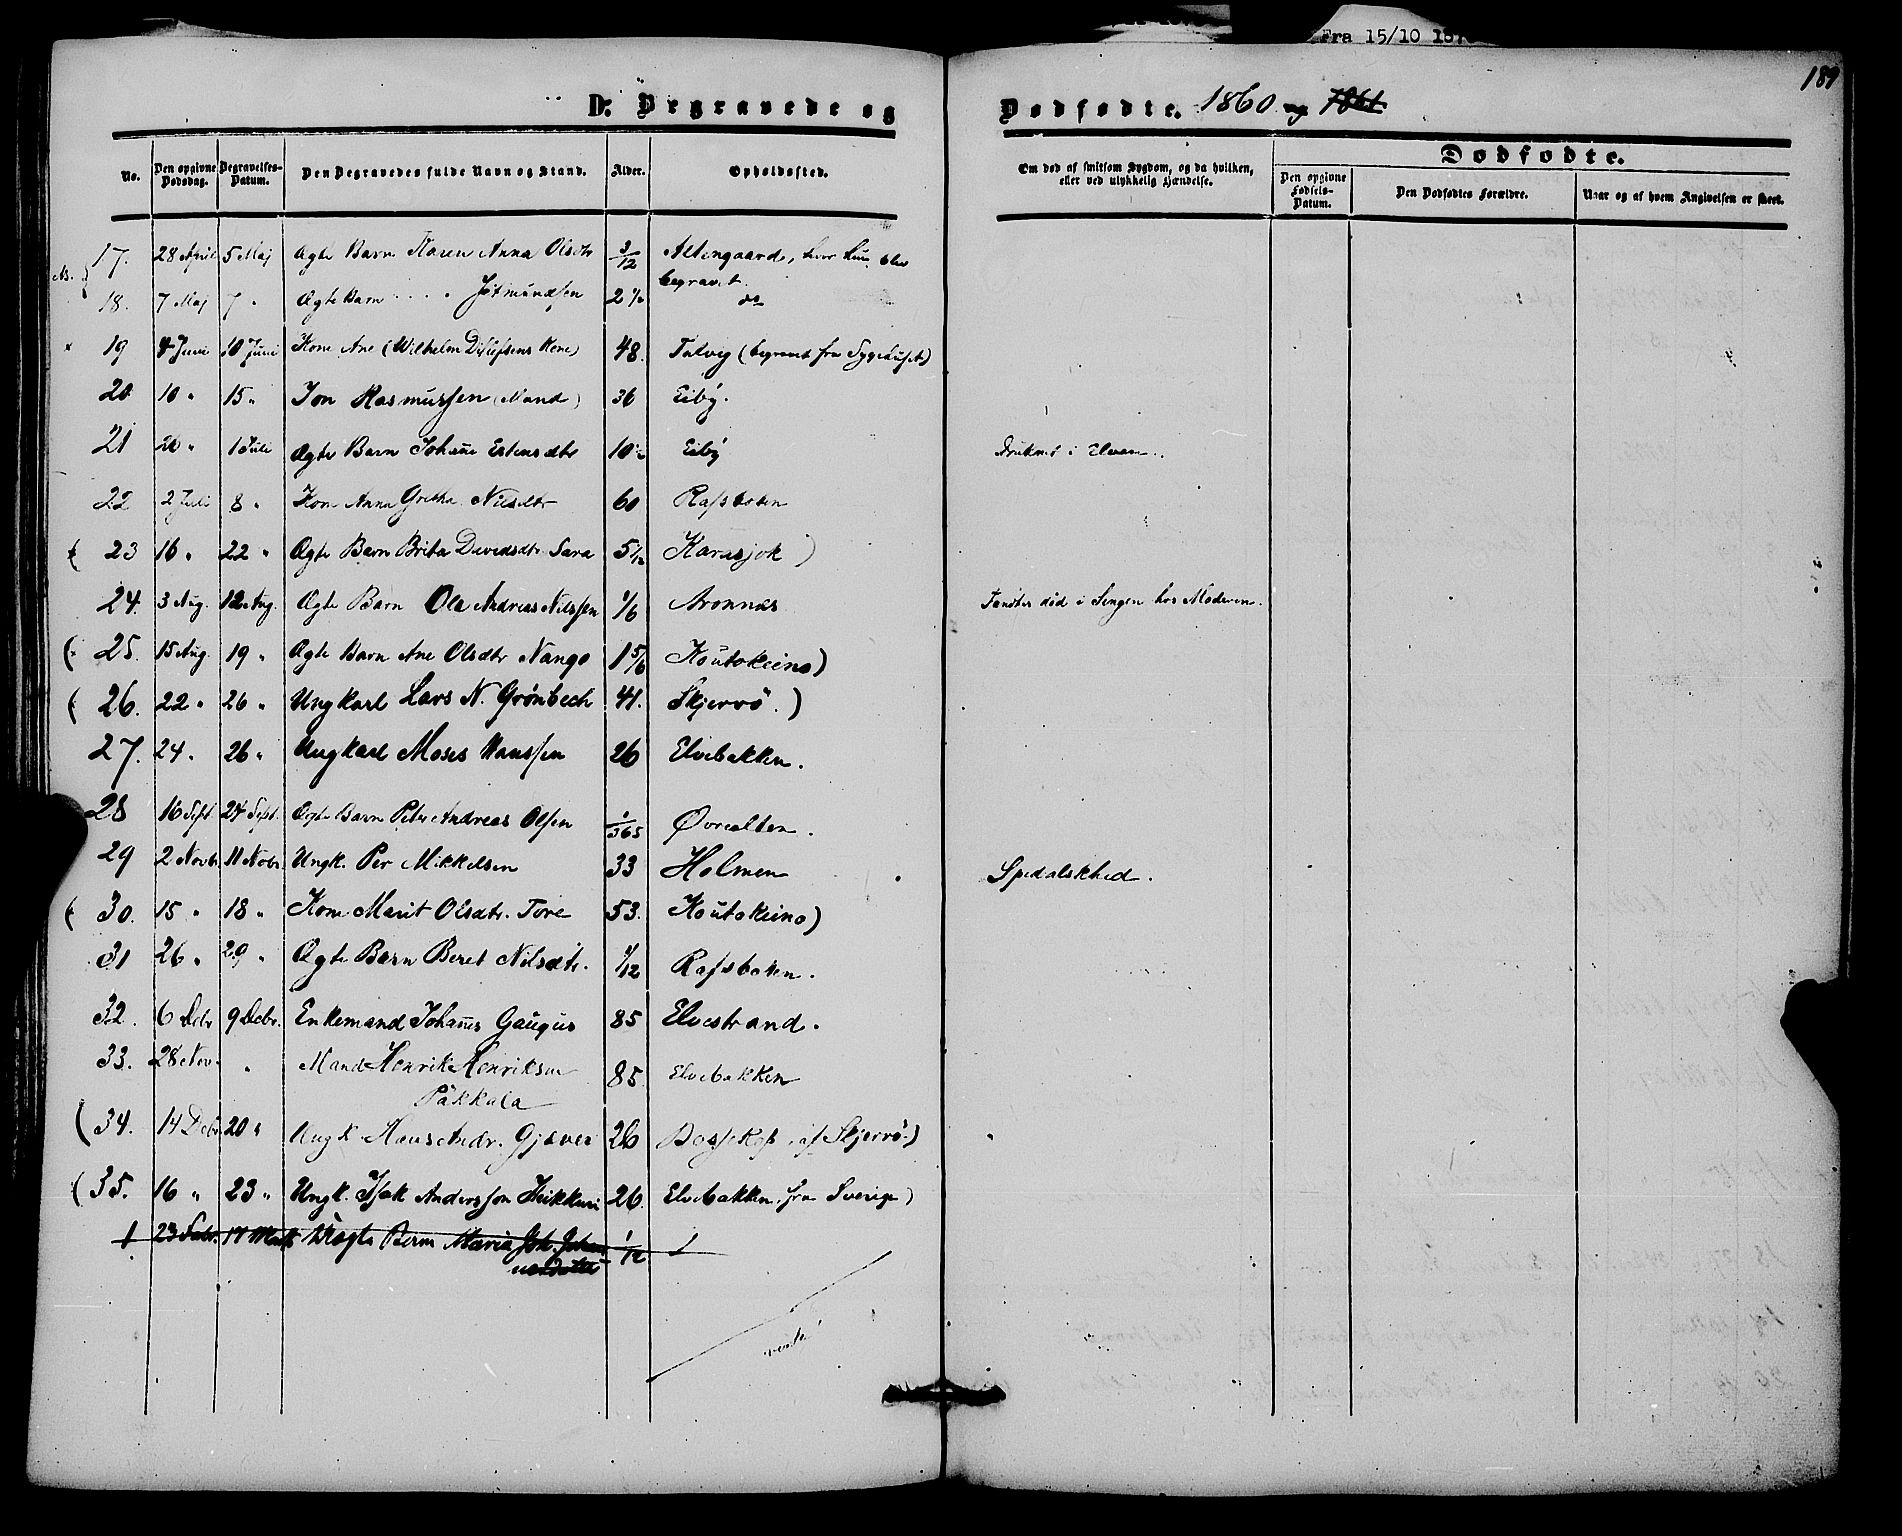 Fra 15/10 187
189
D. Begravede og Dødfødte. 1860 og 1861
No. | Den opgivne Dødsdag. | Begravelses-Datum. | Den Begravedes fulde Navn og Stand. | Alder. | Opholdssted. | Om død af smitsom Sygdom, og da hvilken, eller ved ulykkelig Hændelse. | Dødfødte.
Den opgivne Fødsels-Datum. | Den Dødfødtes Forældre. | Naar og af hvem Angivelsen er skeet.
17. 28 April 5 Maj Ægte Barn Karen Anna Olsdtr 3/12 Altengaard, hvor hun blev
begravet.
18. 7 Maj 7 " Ægte Barn . . . . Jetmundsen 2 do
19 4 Juni 10 Juni Kone Ane (Wilhelm Ditlefsens Kone) 48. Talvig (begravet fra Sygehuset)
20 10 " 15 " Jon Rasmussen (Mand) 36 Eiby.
21 20 " 1 Juli Ægte Barn Johanne Estensdtr 10 Eiby Druknet i Elven.
22 2 Juli 8 " Kone Anna Gretha Nilsdtr 60 Rafsbotten
23 16 " 22 " Ægte Barn Brita Davidsdtr Sara 5/12 Karasjok )
24. 3 Aug. 12 Aug. Ægte Barn Ole Andreas Nilssen 1/6 Aronnæs Fandtes død i Sengen hos Moderen.
( 25. 15 Aug. 19 " Ægte Barn Ane Olsdtr Nango 1 5/6 Koutokeino)
( 26. 22 " 26 " Ungkarl Lars N. Grønbech 41. Skjervø. )
27. 24. " 26 " Ungkarl Moses Hanssen 26 Elvebakken.
28 16 Sept. 24 Sept. Ægte Barn Peter Andreas Olsen 1/365 Øvrealten.
29 2 Novbr 11 Novbr. Ungk. Per Mikkelsen 33 Holmen Spedalskhed.
( 30. 15 " 18 " Kone Marit Olsdtr. Tore 53. Koutokeino)
31 26 " 29 " Ægte Barn Beret Nilsdtr. 1/12 Rafsbotten.
32. 6 Dcbr 9 Dcbr. Enkemand Johannes Gaugus 85 Elvestrand.
33. 28 Nov. " Mand Henrik Henriksen 85. Elvebakken
Pakkala
( 34. 14 Dcbr. 20 " Ungk. Hans Andr. Gjæver 26 Bossekop, af Skjervø.)
( 35. 16 " 23 " Ungk. Isak Andersson Heikkuri 26. Elvebakken, fra Sverige )
1 23 Febr. 17 Marts Uægte Barn Maria Joh. 1/12